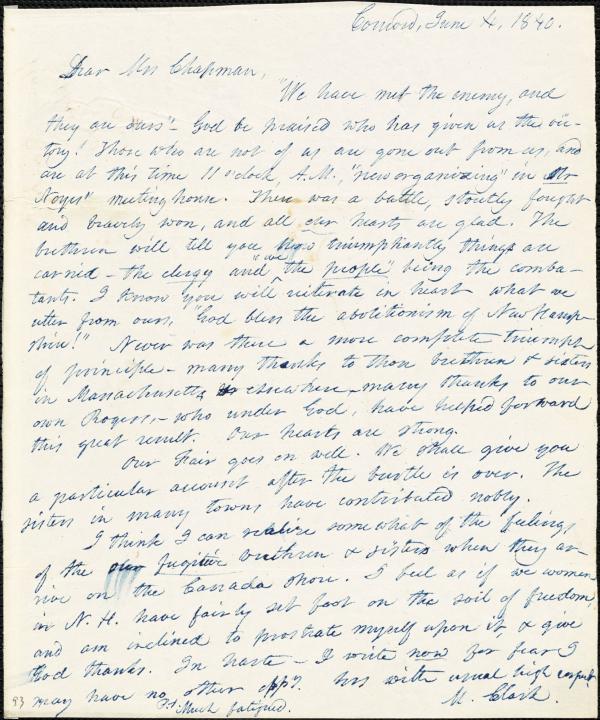 Concord, June 4, 1840.
Dear Mrs Chapman,
"We have met the enemy, and
they are ours" - God be praised who has given us the vic-
tory! Those who are not of us are gone out from us, and
are at this time 11 o'clock A.M., "new organizing" in Mr
Noyes' meeting house. There was a battle, stoutly fought
and bravely won, and all our hearts are glad. The
brethren will tell you how triumphantly things are
carried - the clergy and "we the people" being the comba-
tants. I know you will reiterate in heart what we
utter from ours, "God bless the abolitionism of New Hamp-
shire!" Never was there a more complete triumph
of principle - many thanks to those brethren & sisters
in Massachusetts & elsewhere, many thanks to our
own Rogers, - who under God, have helped forward
this great result. Our hearts are strong.
Our Fair goes on well. We shall give you
a particular account after the bustle is over. The
sisters in many towns have contributed nobly.
I think I can realize somewhat of the feelings
of the our fugitive brethren & sisters when they ar-
rive on the Canada shore. I feel as if we women
in N. H. have fairly set foot on the soil of freedom,
and am inclined to prostrate myself upon it, & give
God thanks. In haste - I write now for fear I
may have no other oppy. Yrs with usual high respect
M. Clark.
P.S. Much fatigued.
93